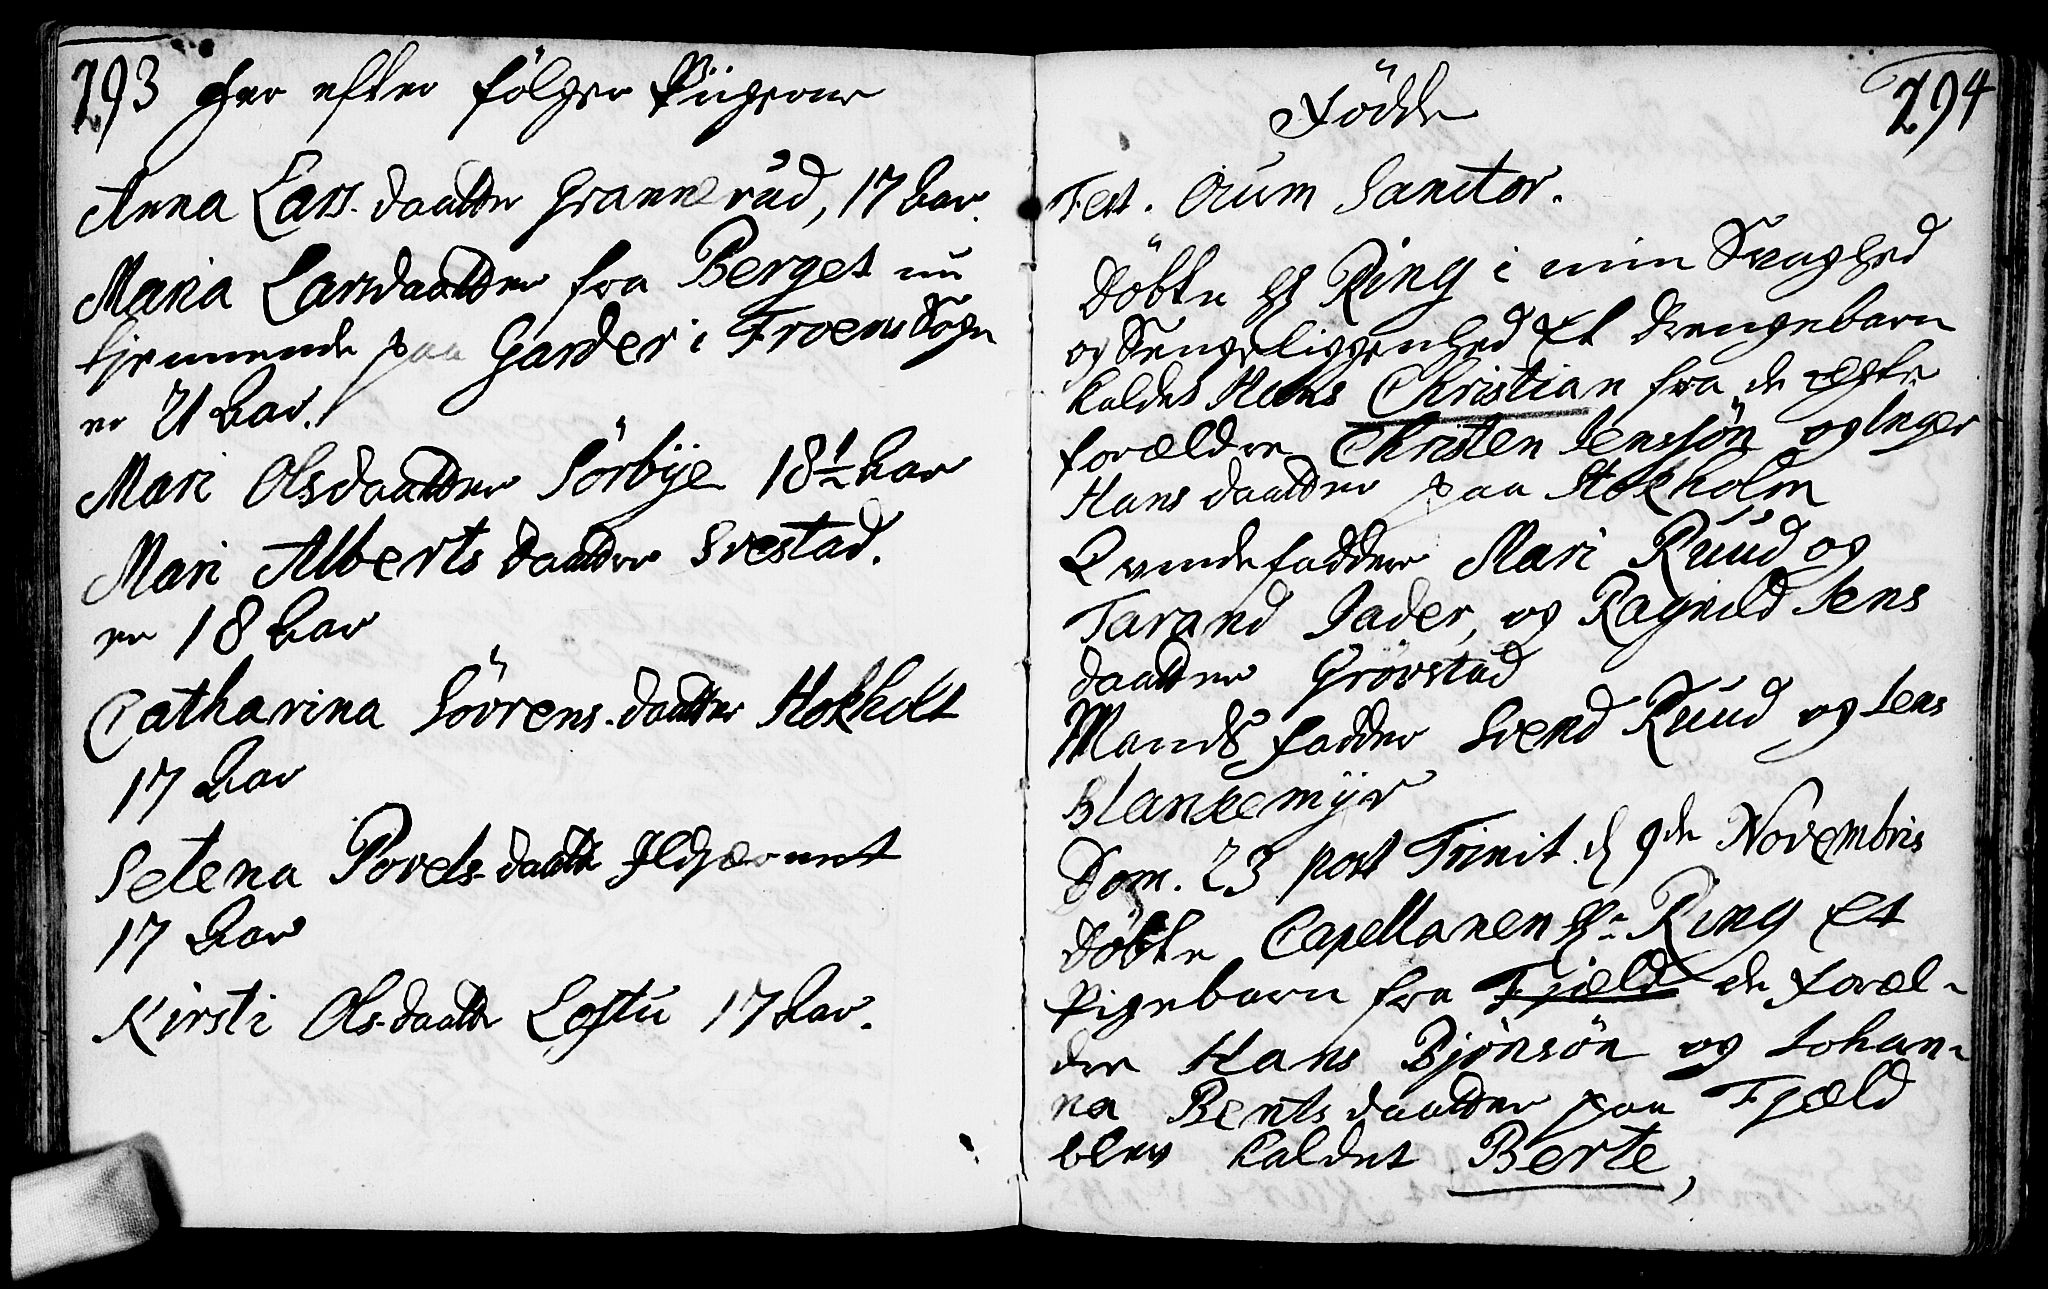 293 Her efter følger Piigerne
Anna Lars-daatter Grannerud, 17 aar.
Maria Larsdaatter fra Berget nu
tjennende paa Garder i Froens Sogn
er 21 aar.
Mari Olsdaatter Sörbÿe 18½ aar
Mari Alberts daatter Svestad.
er 18 aar
Catharina Sövrens-daatter Hokholt
17 aar
Selena Povels-daatter Ildjærnet
17 aar
Kirsti Ols-daatter Loftu 17 aar.
Födde 294
Fest. Oium Sanctor.
Döbte Hr Ring i min Svaghed
og Sengeliggenhed Et drengebarn
kaldet Hans Christian fra de ægte
forældre Christen Jenssön og Inger
Hans daatter paa Stokholm
Qvindefaddere Mari Ruud og
Tarand Jader, og Ragnild Jens
daatter Grövstad
Mands fadder Svend Ruud og Jens
Blankemÿr
Dom. 23 post Trinit. d 9de Novembris
döbte Capellanen Hr: Ring Et
Pigebarn fra Fjæld de Foræl-
dre Hans Bjönsön og Johan-
na Bentsdaatter paa Fjæld
blev kaldet Berte,